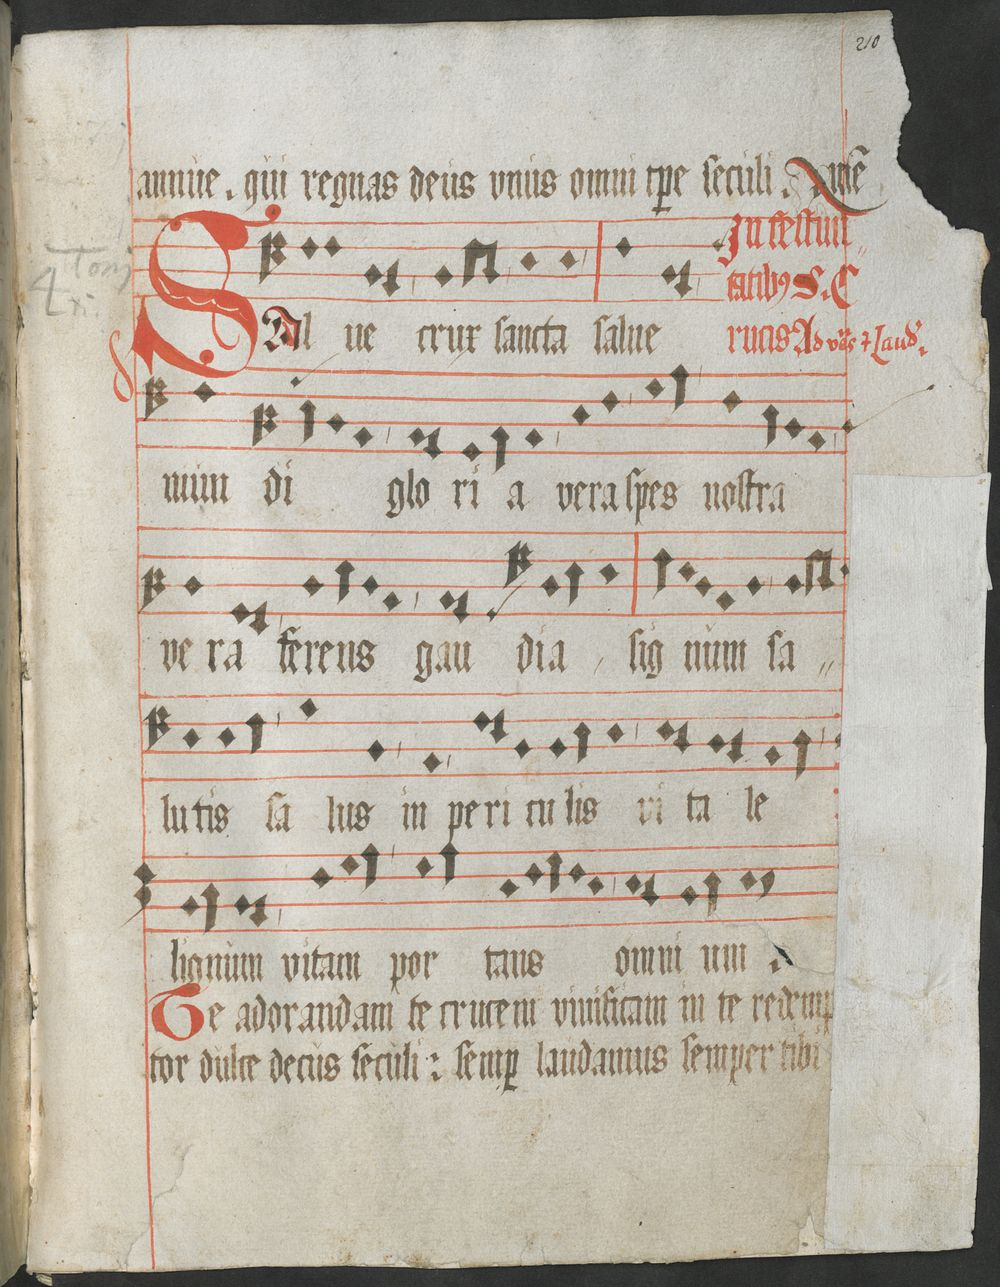 210
annue . qui regnas deus vnius omni tpe seculi . Ame
In festiui
tatibus S. C
4 Toni
SAl ue crux sancta salue
rucis Ad vas et Laud.
mun di glo ri a vera spes nostra
ve ra ferens gau dia , sig num sa
lutis sa lus in pe ri cu lis vi ta le
lignum vitam por tans omni um .
Te adorandam te crucem viuificam in te redemp
tor dulce decus seculi : semp laudamus semper tibi